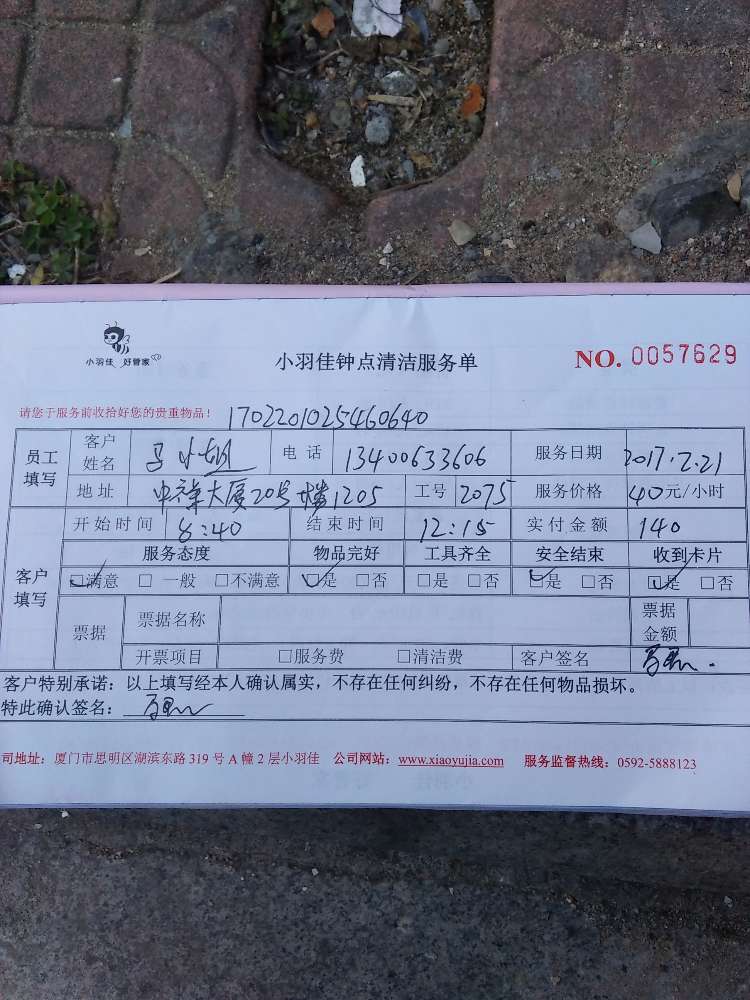 小羽佳 好管家
小羽佳钟点清洁服务单
NO. 0057629
请您于服务前收拾好您的贵重物品！ 1702201025460640
员工填写 客户姓名 马小姐 电话 13400633606 服务日期 2017.2.21
地址 中禄大厦20号楼1205 工号 2075 服务价格 40元/小时
客户填写 开始时间 8:40 结束时间 12:15 实付金额 140
服务态度 物品完好 工具齐全 安全结束 收到卡片
☑满意 □一般 □不满意 ☑是 □否 □是 □否 ☑是 □否 ☑是 □否
票据 票据名称 票据金额
开票项目 □服务费 □清洁费 客户签名
客户特别承诺：以上填写经本人确认属实，不存在任何纠纷，不存在任何物品损坏。
特此确认签名：
司地址：厦门市思明区湖滨东路319号A幢2层小羽佳 公司网站：www.xiaoyujia.com 服务监督热线：0592-5888123